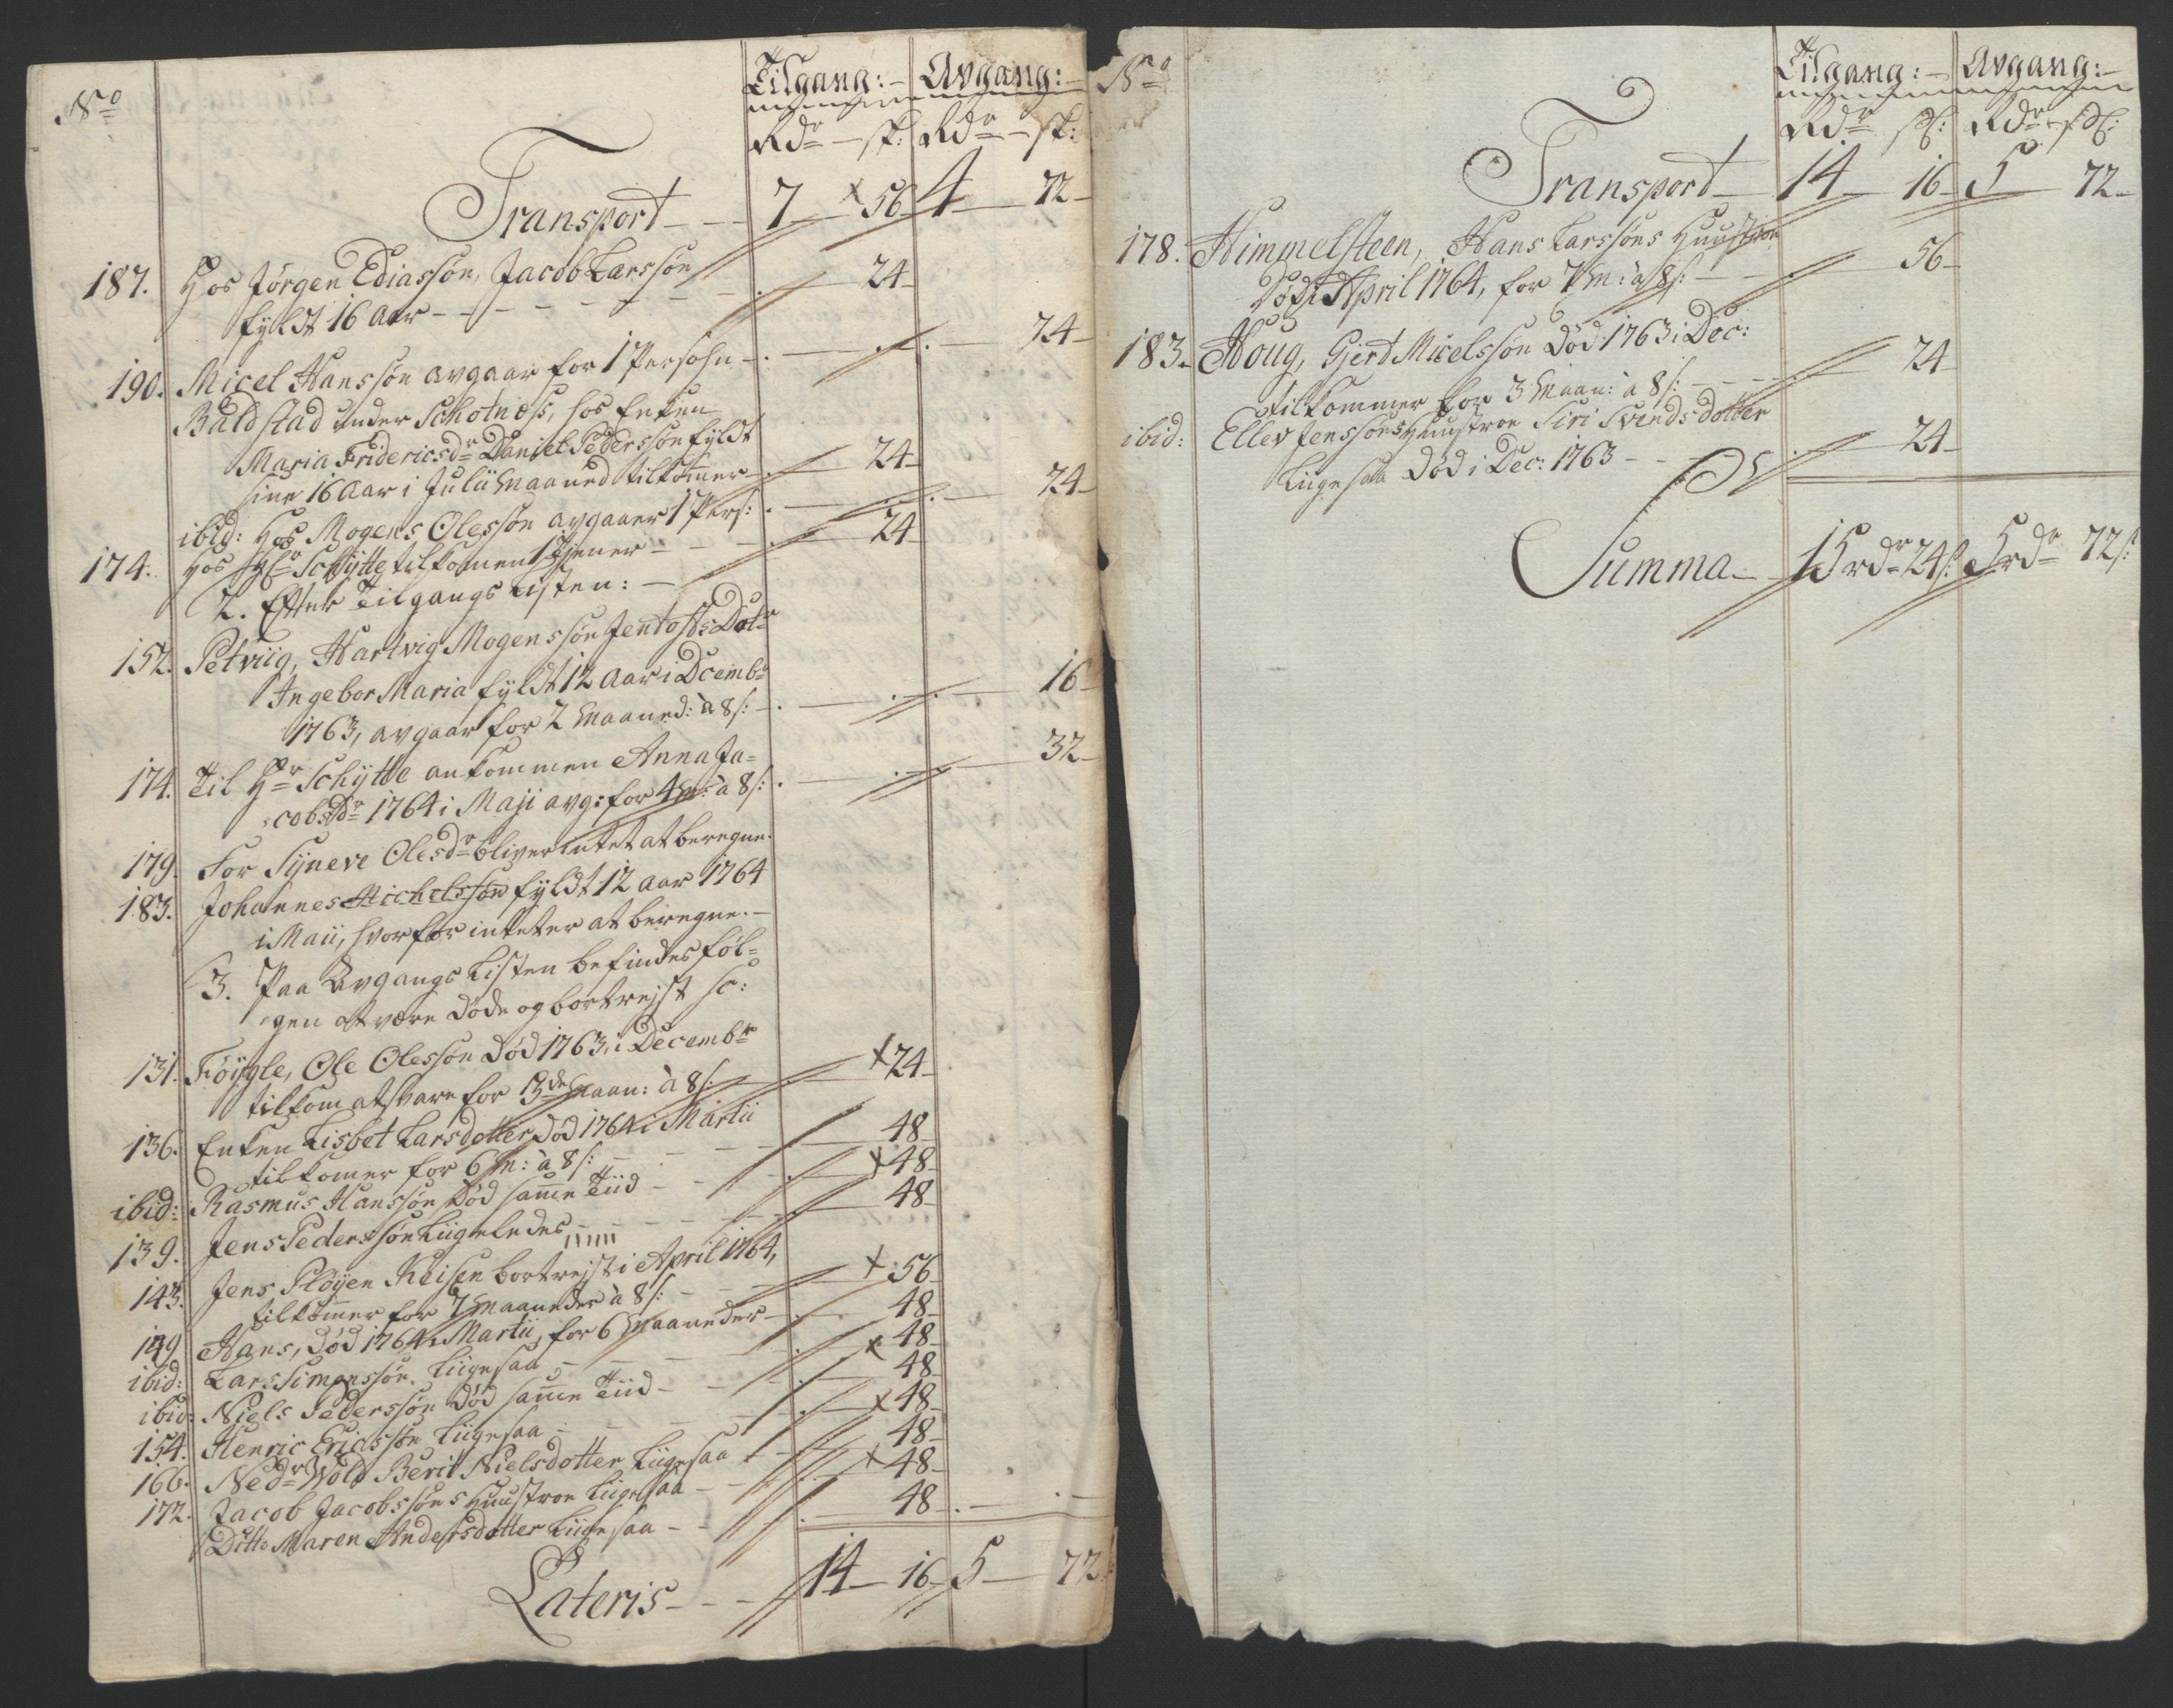 No
Tilgang: Avgang:
Rdr – sk: Rdr – sk:
Transport – 7 56 4 72
187. Hos Jörgen Ediassön, Jacob Larssön
fyldt 16 Aar – 24
190. Micel Hanssön avgaar for 1 Persohn – 24
Baldstad under Schotnæss, hos Enken
Maria Fridericsdr Daniel Pederssön fyldt
sine 16 Aar i Julii Maaned tilkom̄er – 24
ibid: Hos Mogens Olessön avgaaer 1 Pers: 24
174. Hos Hr Schÿtte tilkomen 1 Tjener – 24
2. Efter Tilgangs Listen: –
152. Petviig, Hartvig Mogenssön Jentofts Dotr
Ingebor Maria fyldt 12 Aar i Dcembr
1763, avgaar for 2 Maaned: à 8 s: – 16
174. Til Hr Schÿtte ankommen Anna Ja=
cobsdr 1764 i Maji avg: for 4 M: à 8 s: 32
179. For Sÿneve Olesdr bliver intet at beregne.
183. Johannes Michelssön fyldt 12 Aar 1764
i Maii, hvorfor intet er at beregne. –
3. Paa Avgangs Listen befindes föl=
gen at være döde og bortrejst sc:
131. Föÿgle, Ole Olessön död 1763 i Decembr
tilkom at svare for 3de Maan: à 8 s: 24
136. Enken Lisbet Larsdotter död 1764 i Martii
tilkomer for 6 M: à 8 s: 48
ibid: Rasmus Hanssön död sam̄e Tiid – 48
139. Jens Pederssön Liigeledes – 48
143. Jens Plöÿen Reisen bortrejst i April 1764,
tilkom̄er for 7 Maaneder à 8 s: 56
149 Hans, död 1764 i Martii, for 6 Maaneder – 48
ibid: Lars Simonssön Liigesaa – 48
ibid: Niels Pederssön död sam̄e Tiid – 48
154. Henric Ericssön Liigesaa – 48
166. Nedr Wold Berit Nielsdotter Liigesaa 48
172. Jacob Jacobssöns Huustroe Liigesaa – 48
Ditto Maren Andersdotter Liigesaa – 48
Lateris – 14 16 5 72
No
Tilgang: – Avgang: –
Rdr sk: Rdr – sk:
Transport – 14 16 5 72
178. Himmelsteen, Hans Larssöns Huustroe
död i April 1764, for 7 M: à 8 s: – 56
183. Houg, Gjert Micelssön död 1763 i Dec:
tilkommer for 3 Maan: à 8 s: – 24
ibid: Ellev Jenssöns Huustroe Siri Svendsdotter
Liigesaa död i Dec: 1763 – 24
Summa – 15 rdr 24 s: 5 rdr 72 s: